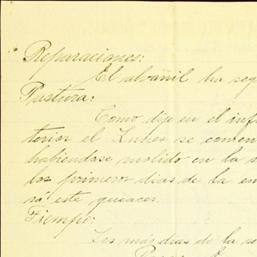 Reparaciones:
El albañil ha seg
Pastura:
Como dije en el inf
terior el Lunes se comen
habiendose molido en la s
los primeros dias de la en
rá este quehacer.
Tiempo:
Los más dias de la se